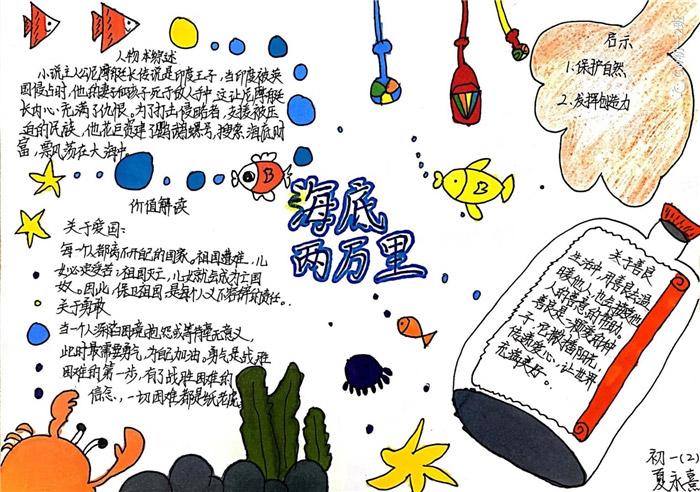 人物术综述
小说主人公尼摩艇长传说是印度王子,当印度被英
国侵占时,他的妻子和孩子死于敌人手中,这让尼摩艇
长内心充满了仇恨。为了打击侵略者,支援被压
迫的民族,他花巨资建了鹦鹉螺号,搜索海底财
富,飘荡在大海中。
价值解读
关于爱国:
每一个人都离不开自己的国家。祖国遭难,儿
女必定受苦;祖国灭亡,儿女就会成为亡国
奴。因此,保卫祖国,是每个人义不容辞的责任。
关于勇敢
当一个人深陷困境,抱怨或等待毫无意义,
此时最需要勇气,为自己加油。勇气是战胜
困难的第一步,有了战胜困难的
信念,一切困难都是纸老虎。
海底
两万里
启示
1.保护自然
2.发挥创造力
关于善良
生活中,用善良去温
暖他人,也会被他
人的善意所
善良是一颗爱的种
子,它散播阳光,
传递爱心,让世界
充满美好。
B
B
初一(2)
夏永熹